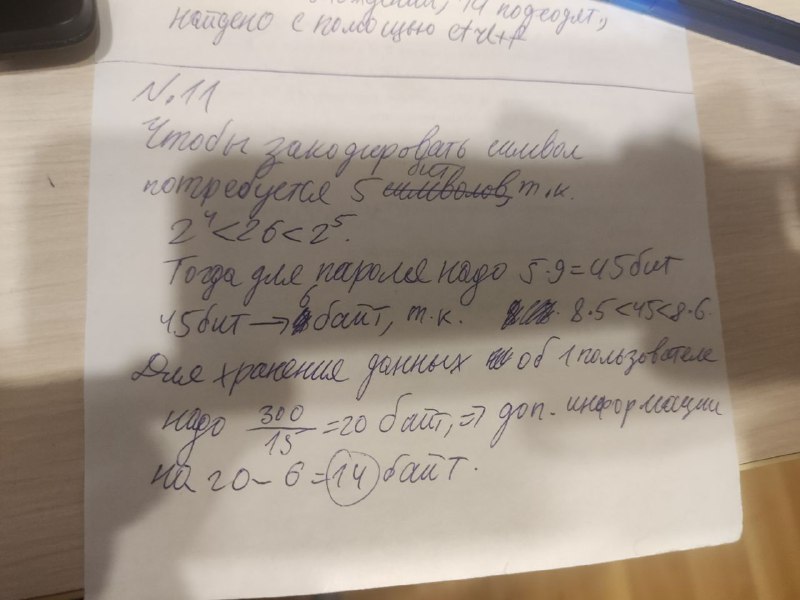 14 подходят,
найдено с помощью ctrl+f
№11
Чтобы закодировать символ
потребуется 5 бит, т.к.
2^4 < 26 < 2^5.
Тогда для пароля надо 5·9=45бит
45бит → 6 байт, т.к. 8·5<45<8·6.
Для хранения данных об 1 пользователе
надо 300/15 = 20 байт, ⇒ доп. информации
на 20 - 6 = 14 байт.